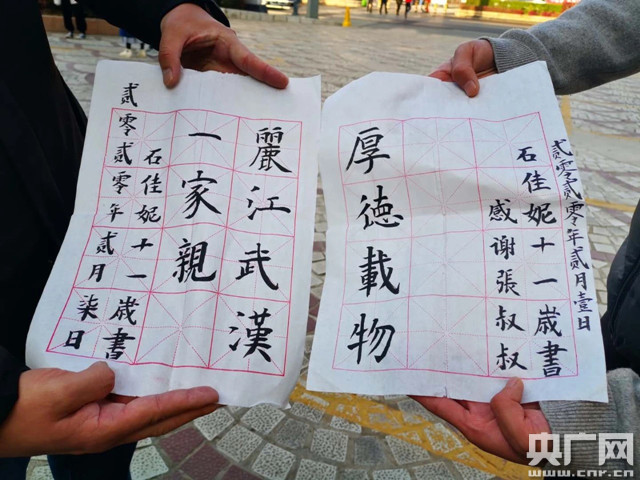 麗江武漢
一家親
石佳妮十一歲書
貳零貳零年貳月柒日
厚德載物
感謝張叔叔
石佳妮十一歲書
貳零貳零年貳月壹日
央广网
www.cnr.cn